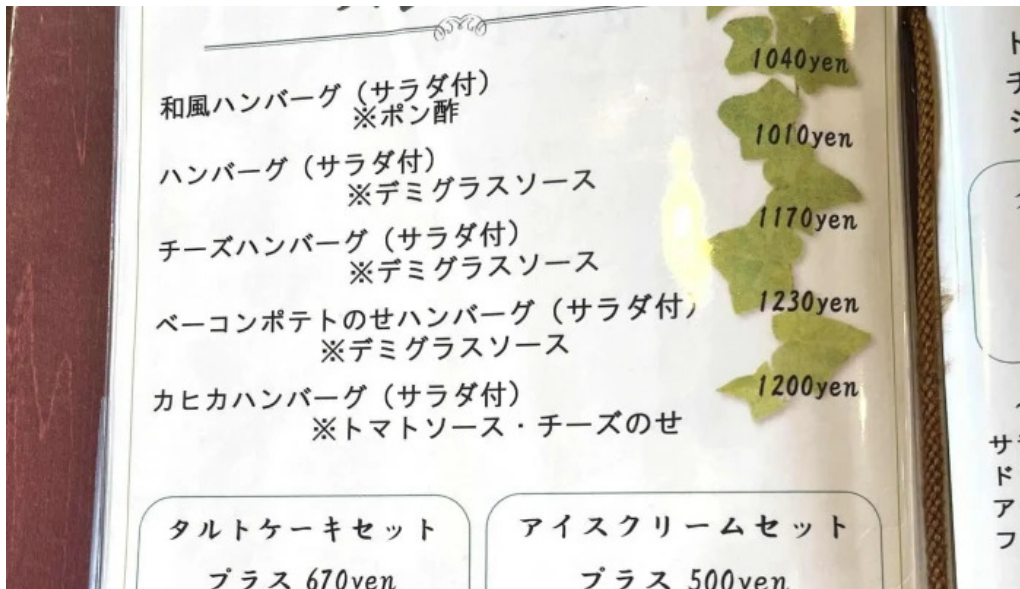 和風ハンバーグ(サラダ付) 1040yen
※ポン酢
ハンバーグ(サラダ付) 1010yen
※デミグラスソース
チーズハンバーグ(サラダ付) 1170yen
※デミグラスソース
ベーコンポテトのせハンバーグ(サラダ付) 1230yen
※デミグラスソース
カヒカハンバーグ(サラダ付) 1200yen
※トマトソース・チーズのせ
タルトケーキセット
プラス 670yen
アイスクリームセット
プラス 500yen